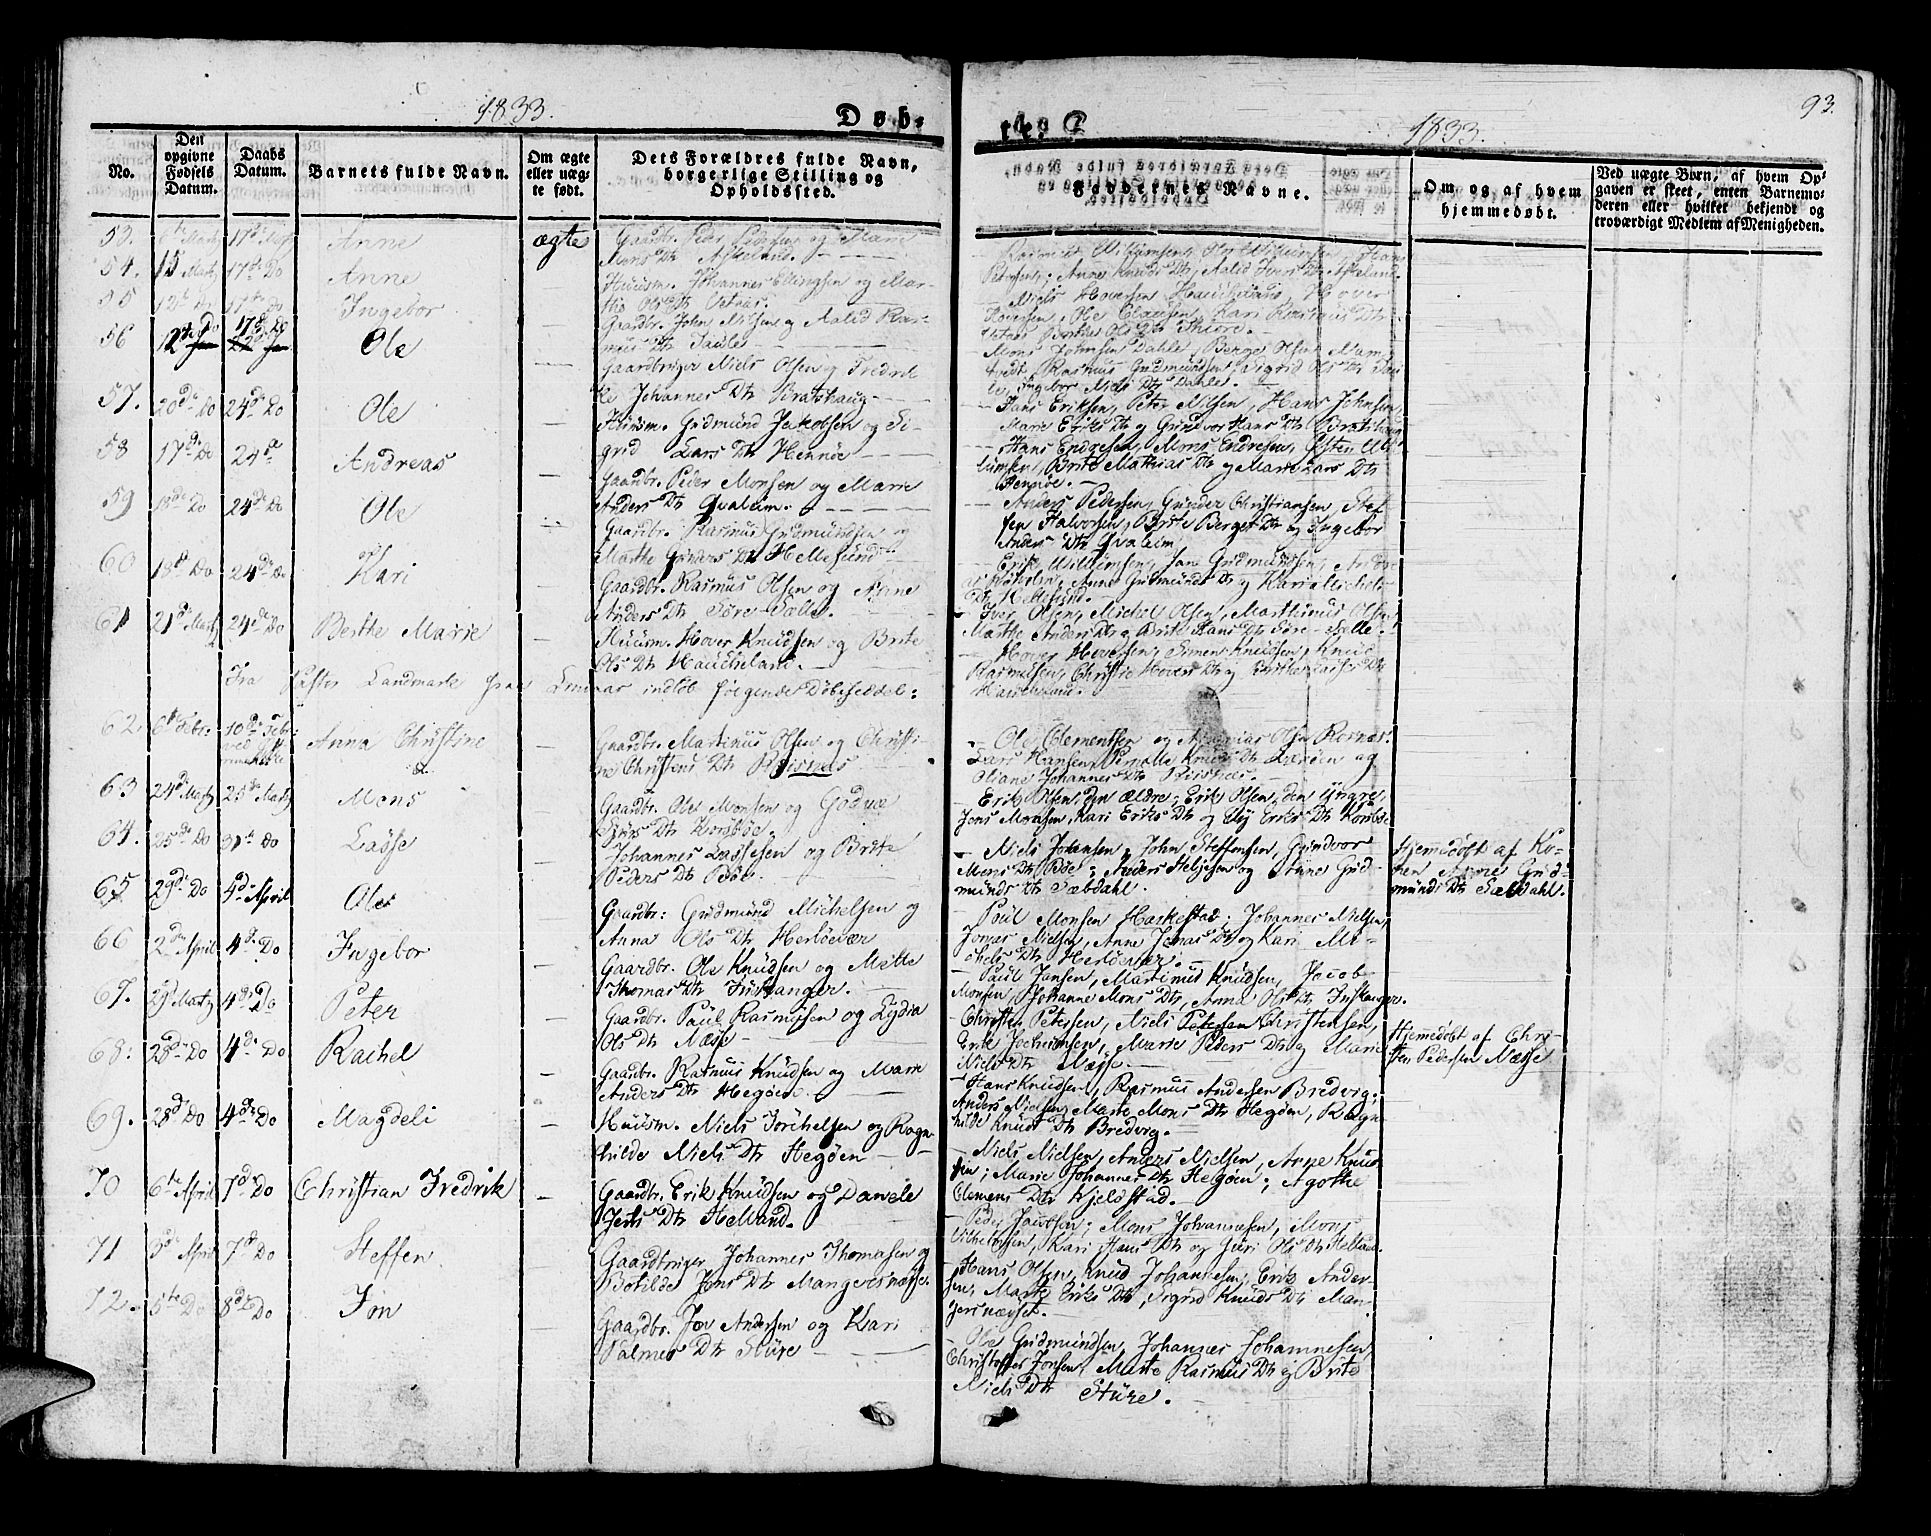 1833.
Døb-
No.
Den opgivne Fødsels Datum.
Daabs Datum.
Barnets fulde Navn.
Om ægte eller uægte født.
Dets Forældres fulde Navn, borgerlige Stilling og Opholdssted.
53. 17de Anne ægte Gaardbr. Peder og Marie
Mons Dtr Askeland.
54. 15 Martz 17de Do Anne Huusm. Johannes Ellingsen og Mar-
the Ols Dtr
55 12te Do 17de Do Ingebor Gaardbr. John Nilsen og Aalid Ras-
mus Dtr
56 12te Do 17de Do Ole Gaardbruger Niels Olsen og Fredrik-
ke Johannes Dtr Bratshaug
57. 20de Do 24de Do Ole Huusm. Gudmund Jakobsen og Si-
grid Lars Dtr Hennøe
58 17de Do 24de Andreas Gaardbr. Peder Monsen og Marie
Anders Dtr Qvaleim.
59 18de Do 24de Do Ole Gaardbr. Rasmus Gudmundsen og
Marthe Gunders Dtr Hellesund
60 18de Do 24de Do Kari Gaardbr. Rasmus Olsen og Anne
Anders Dtr Søre-Sælle.
61 21de Martz 24de Do Berthe Marie Huusm. Hover Knudsen og Brite
Ols Dtr Haucheland.
Fra Landmark fra indløb følgende Døbeseddel:
62. 6te Febr: 10de Febr: Anna Christine Gaardbr. Martinus Olsen og Christi-
ne Christens Dtr Risnæs
63 24de Martz 25de Martz Mons Gaardbr. Ole Monsen og
Dtr Korsbøe.
64. 25de Do 31te Do Lasse Johannes Lassesen og Brite
Peders Dtr Bøe.
65 29de Do 4de April Ole Gaardbr: Gudmund Michelsen og
Anna Ols Dtr Herløevær
66 2den April 4de Do Ingebor Gaardbr. Ole Knudsen og Mette
Thomas Dtr Indstanger.
67. 29de Martz 4de Do Peter Gaardbr. Paul Rasmusen og Lydia
Ols Dtr Næsse
68: 28de Do 4de Do Rachel Gaardbr. Rasmus Knudsen og Marie
Anders Dtr Hegøen.
69. 28de Do 4de Do Magdeli Huusm. Niels Torchelsen og Ragn-
hilde Niels Dtr Hegøen
70 6te April 7de Do Christian Fredrik Gaardbr. Erik Knudsen og Danele
Jens Dtr Helland.
71 3de April 7de Do Steffen Gaardbruger Johannes Thomasen og
Botilde Jens Dtr Mangersnæsse.
72. 5te Do 8de Do Jon Gaardbr. Jon Andersen og Kari
Salmes Dtr Sture
te.
1833.
93.
Faddernes Navne.
Om og af hvem hjemmedøbt.
Ved uægte Børn, af hvem Opgaven er skeet, enten Barnemoderen eller hvilket bekjendt og troværdigt Medlem af Menigheden.
Rasmus Willumsen, Ole Willumsen, Hans
Petersen; Anne Knuds Dtr, Aalid Ivers Dtr Askeland.
Niels Hovesen Haucheland, Hover
Hovesen, Ole Clausen, Kari Rasmus Dtr
Brithe Ols Dtr
Mons Johnsen Dahle, Berge Olsen Mam-
Rasmus Gudmundsen, Sigrid Ols Dtr
Ingebor Niels Dtr Dahle.
Hans Eriksen, Peter Nilsen, Hans Johnsen,
Marie Eriks Dtr og Grundvor Hans Dtr Bratshaug
Hans Endresen, Mons Endresen, Østen Wil-
lumsen, Brite Mathias Dtr og Marie Lars Dtr
Hennøe.
Anders Pedersen, Gunder Christiansen, Stef-
fen Halvorsen, Brite Berges Dtr og Ingebor
Anders Dtr Qvaleim
Erik Willumsen, Jan Gudmundsen,
Anne Gudmunds Dtr og Kari Michels
Dtr Hellesund.
Iver Olsen, Michel Olsen, Marthinus Olsen,
Marthe Anders Dtr og Brite Hans Dtr Søre-Sælle.
Hover Hovesen, Simen Knudsen, Knud
Rasmusen, Christie Hovers Dtr og Dtr
Haucheland.
Ole Clementsen og Olsen Risnæs.
Lars Hansen, Pernille Knuds Dtr og
Oliane Johannes Dtr Risnæs.
Erik Olsen, den ældre; Erik Olsen, den yngre,
Jens Monsen, Kari Eriks Dtr og Eriks Dtr Korsbøe
Niels Johansen, John Steffensen, Gundvor
Mons Dtr Bøe; Anders Helgesen og Anne Gud-
munds Dtr Sæbdahl.
Hjemmedøbt af Ko-
nen Anne Gud-
munds Dtr Sæbdahl.
Poul Monsen Harkestad; Johannes Nielsen,
Jonas Nielsen, Anne Jonas Dtr og Kari Mi-
chels Dtr Herløevær.
Paul Jansen, Martinus Knudsen, Jacob
Monsen, Johanne Mons Dtr, Anna Ols Dtr Indstanger.
Christen Petersen, Niels Petersen Christensen,
Erik Jochumsen, Marie Peders Dtr og Marie
Niels Dtr Næsse.
Hjemmedøbt af Chri-
sten Pedersen Næsse
Hans Knudsen, Rasmus Andersen Bredvig;
Anders Nielsen, Marte Mons Dtr Hegøen, Ragn-
hilde Knuds Dtr Bredvig.
Niels Nielsen, Anders Nielsen, Arne Knud-
sen; Marie Johannes Dtr Hegøen; Agothe
Clemens Dtr Kjelstad.
Peder Jacobsen; Mons Johannesen, Mons
Vilhelmsen, Kari Hans Dtr og Guri Ols Dtr Helland.
Hans Olsen, Knud Johannesen, Erik Ander-
sen, Marte Eriks Dtr, Sigrid Knuds Dtr Man-
gersnæsset.
Ole Gudmundsen, Johannes Johannesen,
Christoffer Jonsen, Marte Rasmus Dtr og Brite
Niels Dtr Sture.